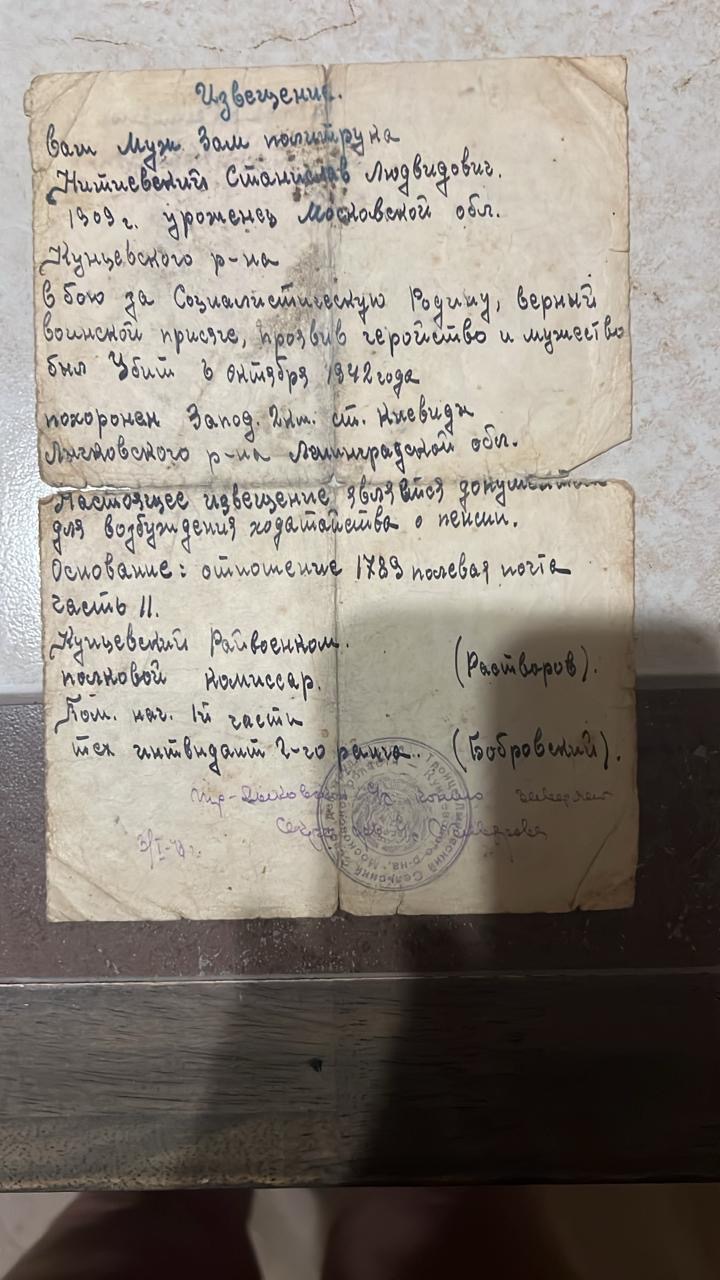 Извещение.
Ваш Муж Зам политрука
Нитиевский Станислав Людвидович.
1909 г. уроженец Московской обл.
Кунцевского р-на
в бою за Социалистическую Родину, верный
воинской присяге, проявив геройство и мужество
был Убит 6 октября 1942 года
похоронен Запад. 2км. ст. Кневидн
Лычковского р-на Ленинградской обл.
Настоящее извещение является документом
для возбуждения ходатайства о пенсии.
Основание: отношение 1789 полевая почта
часть II.
Кунцевский Райвоенком.
полковой комиссар. (Растворов).
Пом. нач. 1й части
тех интендант 2-го ранга. (Бобровский).